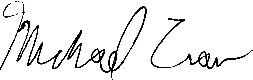 Michael Tran